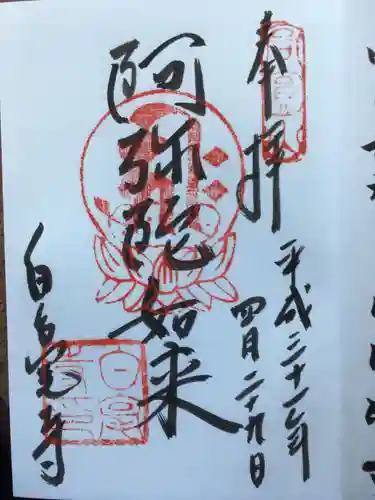 奉拝
平成三十一年
四月二十九日
阿弥陀如来
白毫寺